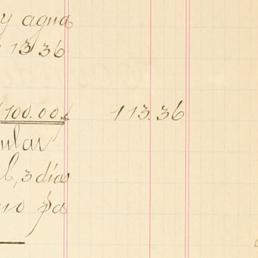 y agua
13.36
100.00 113.36
ular
b, 3 días
no pa